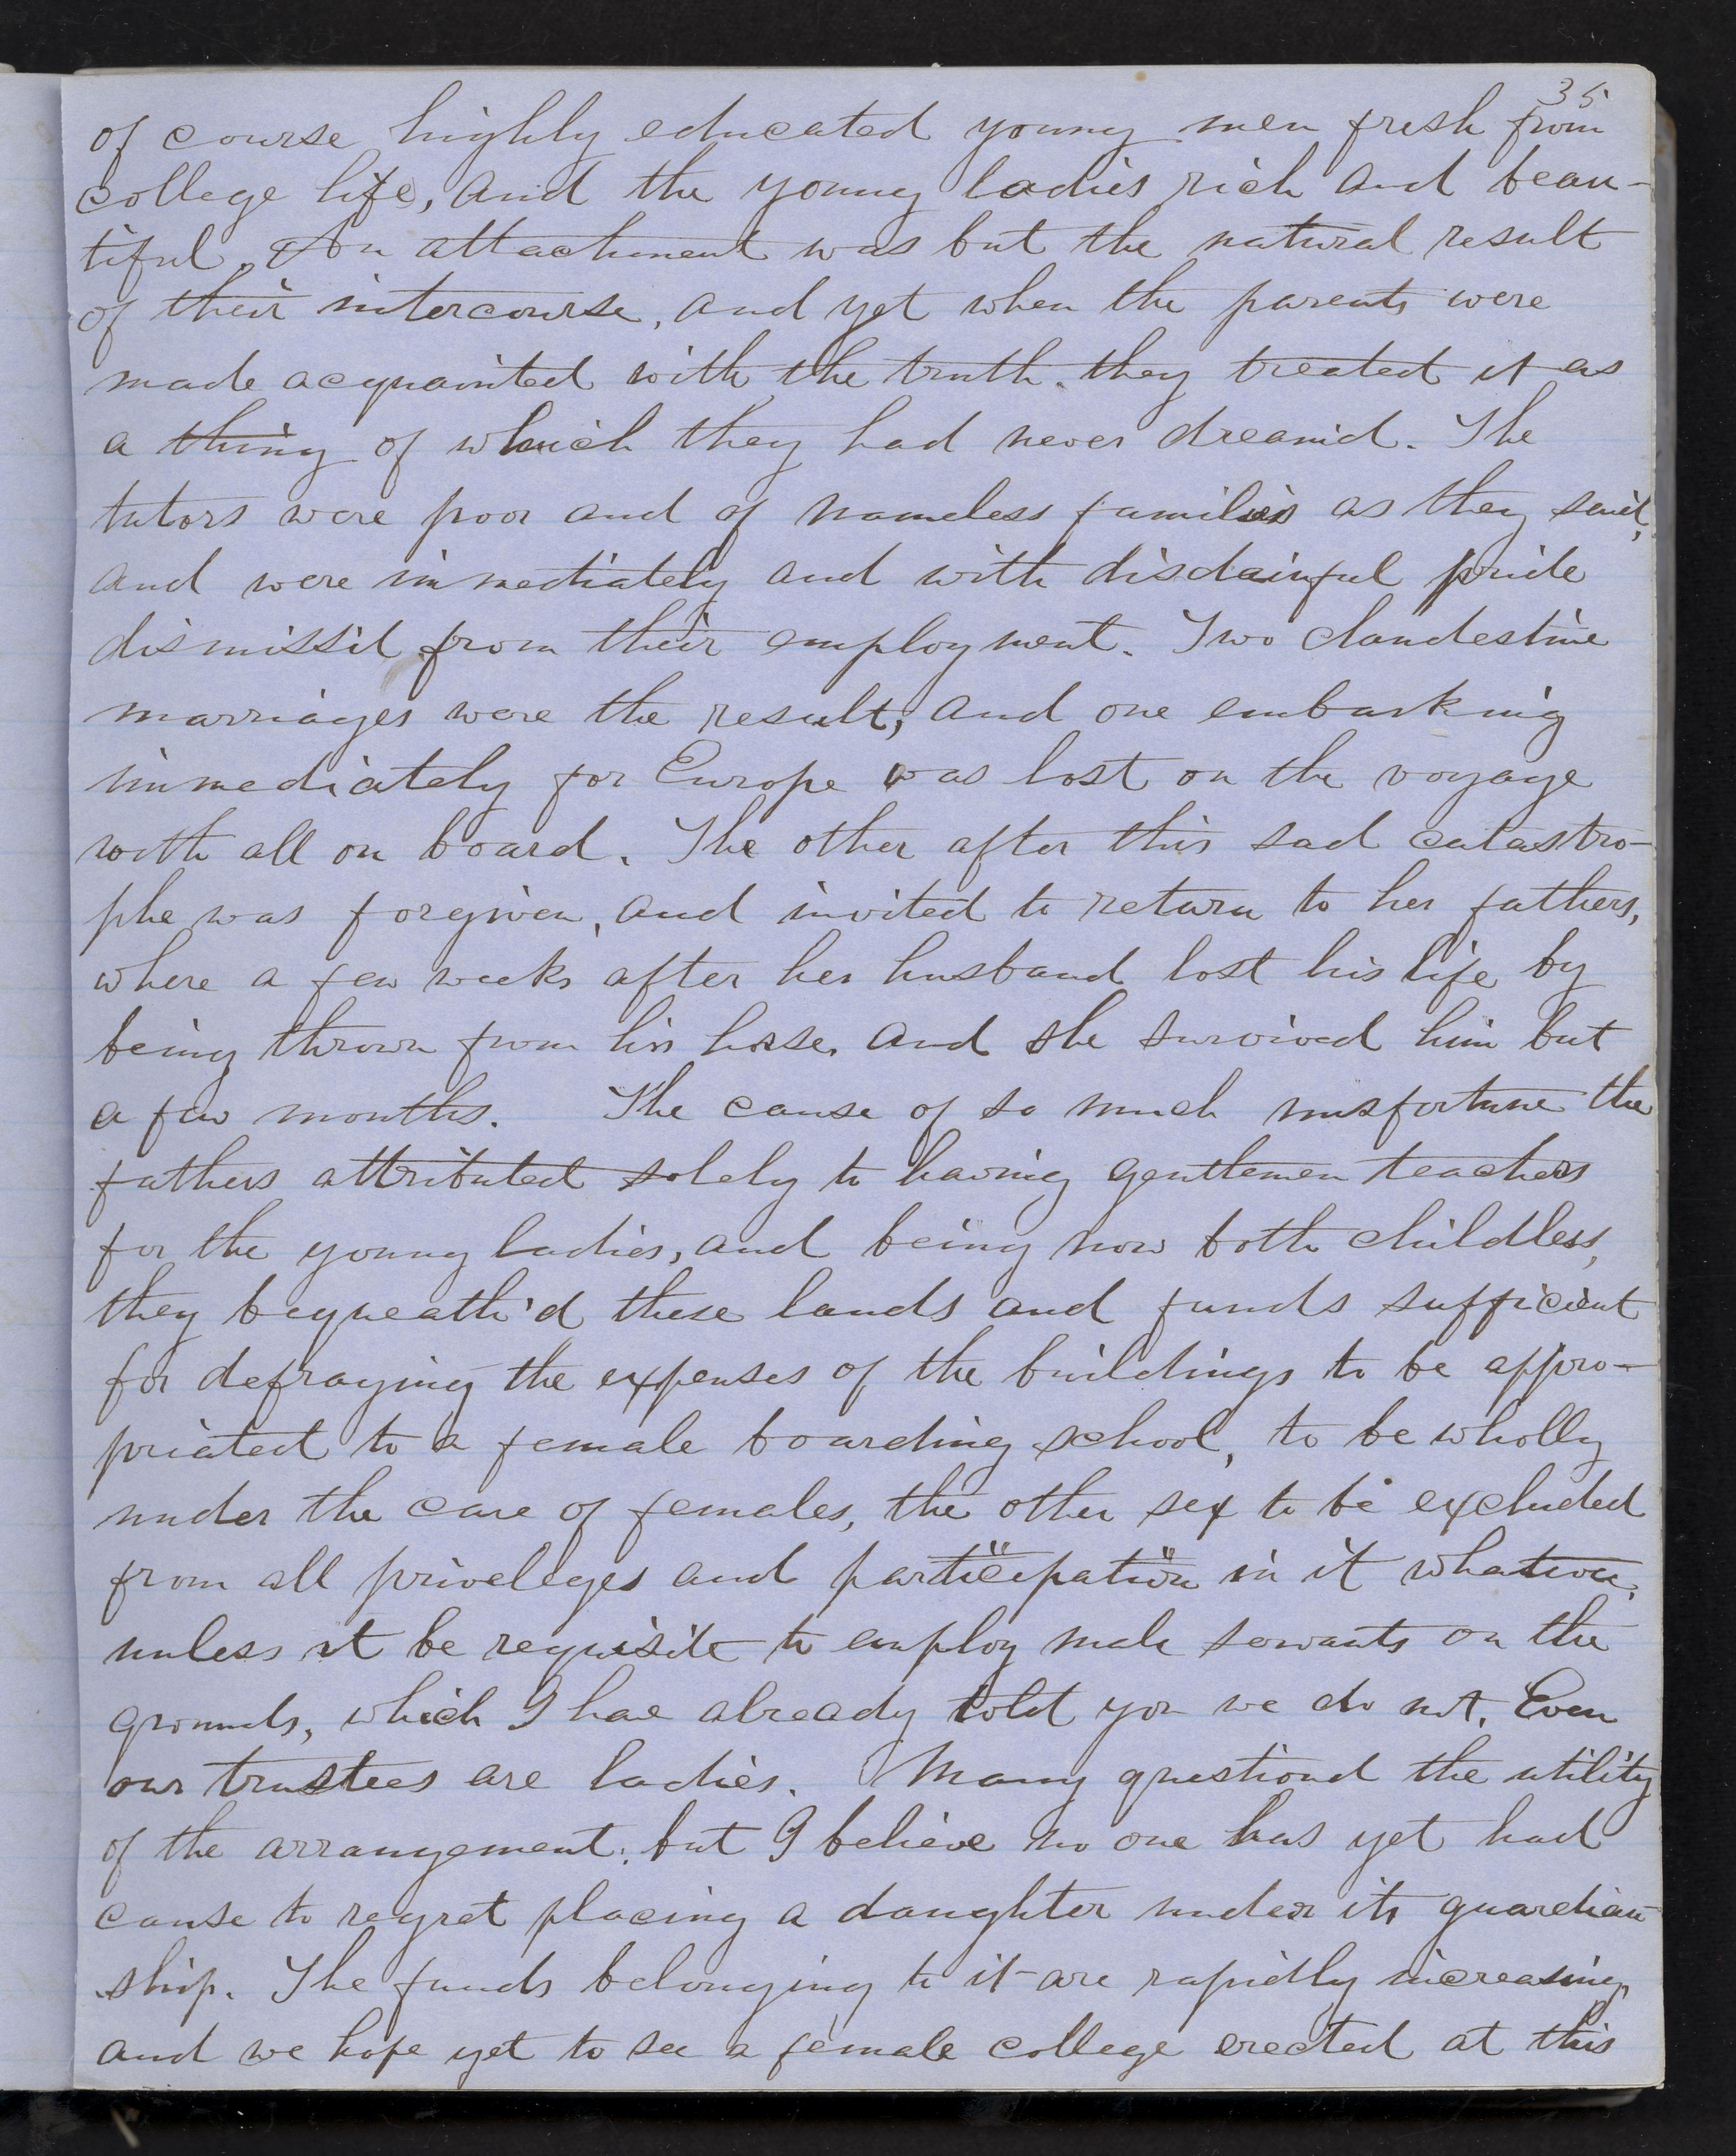 35
of course highly educated young men fresh from
college life, and the young ladies rich and beau-
tiful. An attachment was but the natural result
of their intercourse, and yet when the parents were
made acquainted with the truth. they treated it as
a thing of which they had never dream'd. The
tutors were poor and of nameless families as they said,
and were immediately and with disdainful pride
dismiss'd from their employment. Two clandestine
marriages were the result, and one embarking
immediately for Europe was lost on the voyage
with all on board. The other after this sad catastro-
phe was forgiven, and invited to return to her fathers,
where a few weeks after her husband lost his life by
being thrown from his horse, and she survived him but
a few months. The cause of so much misfortune the
fathers attributed solely to having gentlemen teachers
for the young ladies, and being now both childless,
they bequeath'd these lands and funds sufficient
for defraying the expenses of the buildings to be appro-
priated to a female boarding school, to be wholly
under the care of females, the other sex to be excluded
from all priveleges and participation in it whatever,
unless it be requisite to employ male servants on the
grounds, which I have already told you we do not. Even
our trustees are ladies. Many question'd the utility
of the arrangement, but I believe no one has yet had
cause to regret placing a daughter under its guardian-
ship. The funds belonging to it are rapidly increasing,
and we hope yet to see a female college erected at this